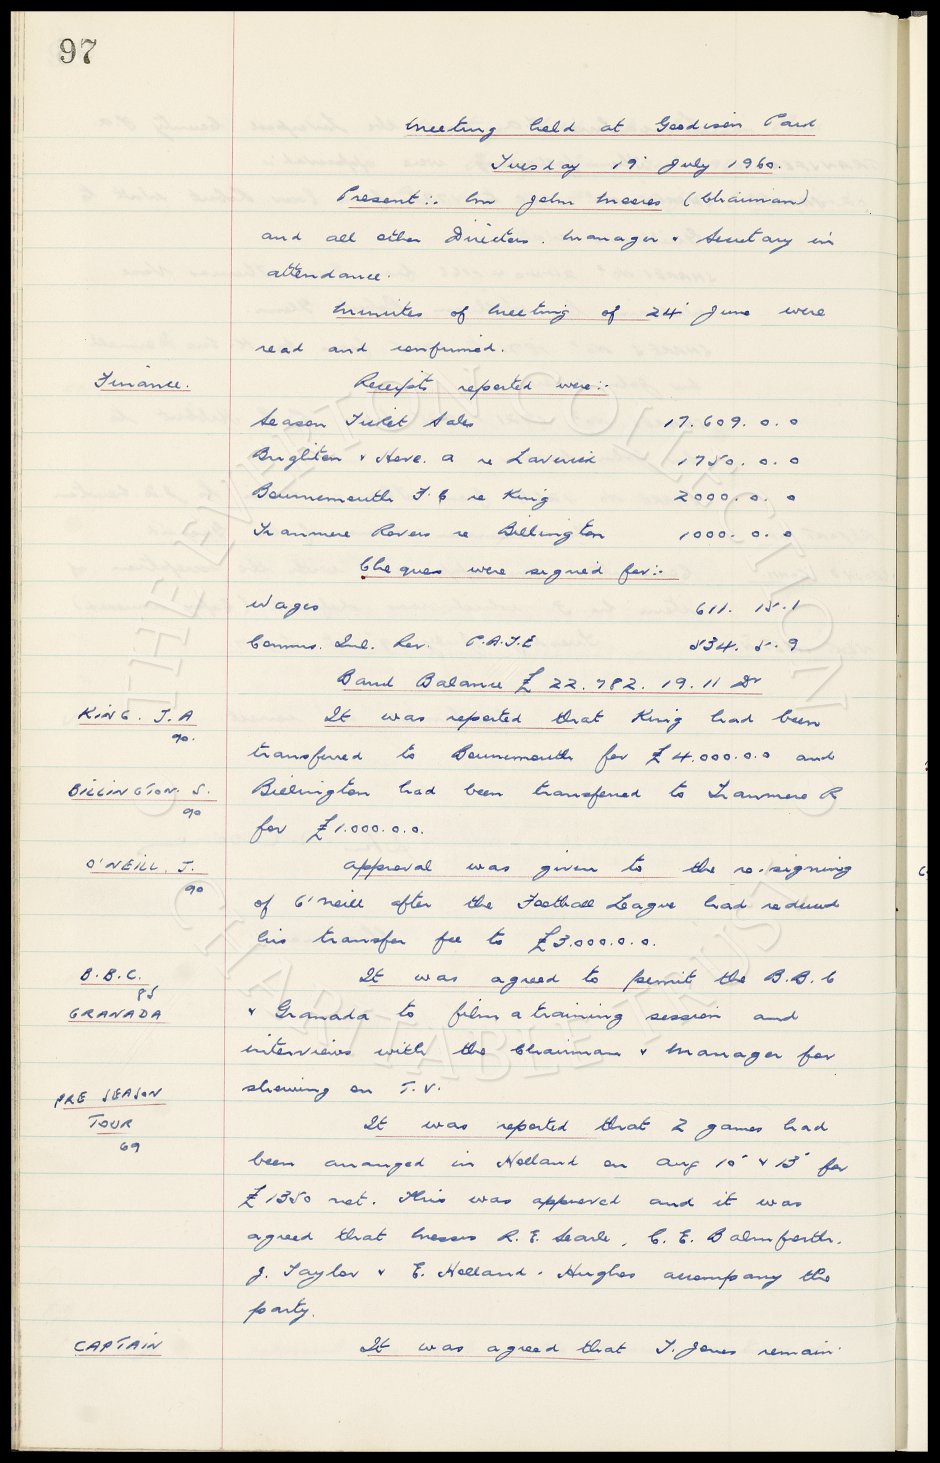 97
Meeting held at Goodison Park
Tuesday 19' July 1960.
Present:. Mr John Moores (Chairman)
and all other Directors. Manager & Secretary in
attendance.
Minutes of Meeting of 24' June were
read and confirmed.
Finance. Receipts reported were:.
Season Ticket Sales 17.609. 0. 0
Brighton & Hove. A re Laverick 1750. 0. 0
Bournemouth F.C re King 2000. 0. 0
Tranmere Rovers re Billington 1000. 0. 0
Cheques were signed for:.
Wages 611. 15. 1
Comms. Inl. Rev. P.A.Y.E 534. 5. 9
Bank Balance £22.782. 19. 11 Dr
KING. J.A It was reported that King had been
90. transferred to Bournemouth for £4.000.0.0 and
BILLINGTON. S. Billington had been transferred to Tranmere R
90 for £1.000.0.0.
O'NEILL. J. Approval was given to the re-signing
90 of O'Neill after the Football League had reduced
his transfer fee to £3.000.0.0.
B.B.C. It was agreed to permit the B.B.C
85
GRANADA & Granada to film a training session and
interviews with the Chairman & Manager for
showing on T.V.
PRE SEASON
TOUR It was reported that 2 games had
69 been arranged in Holland on Aug 10' & 13' for
£1350 net. This was approved and it was
agreed that Messrs R.E. Searle, C.E. Balmforth.
J. Taylor & E. Holland-Hughes accompany the
party.
CAPTAIN It was agreed that T. Jones remain
THE EVERTON COLLECTION
CHARITABLE TRUST